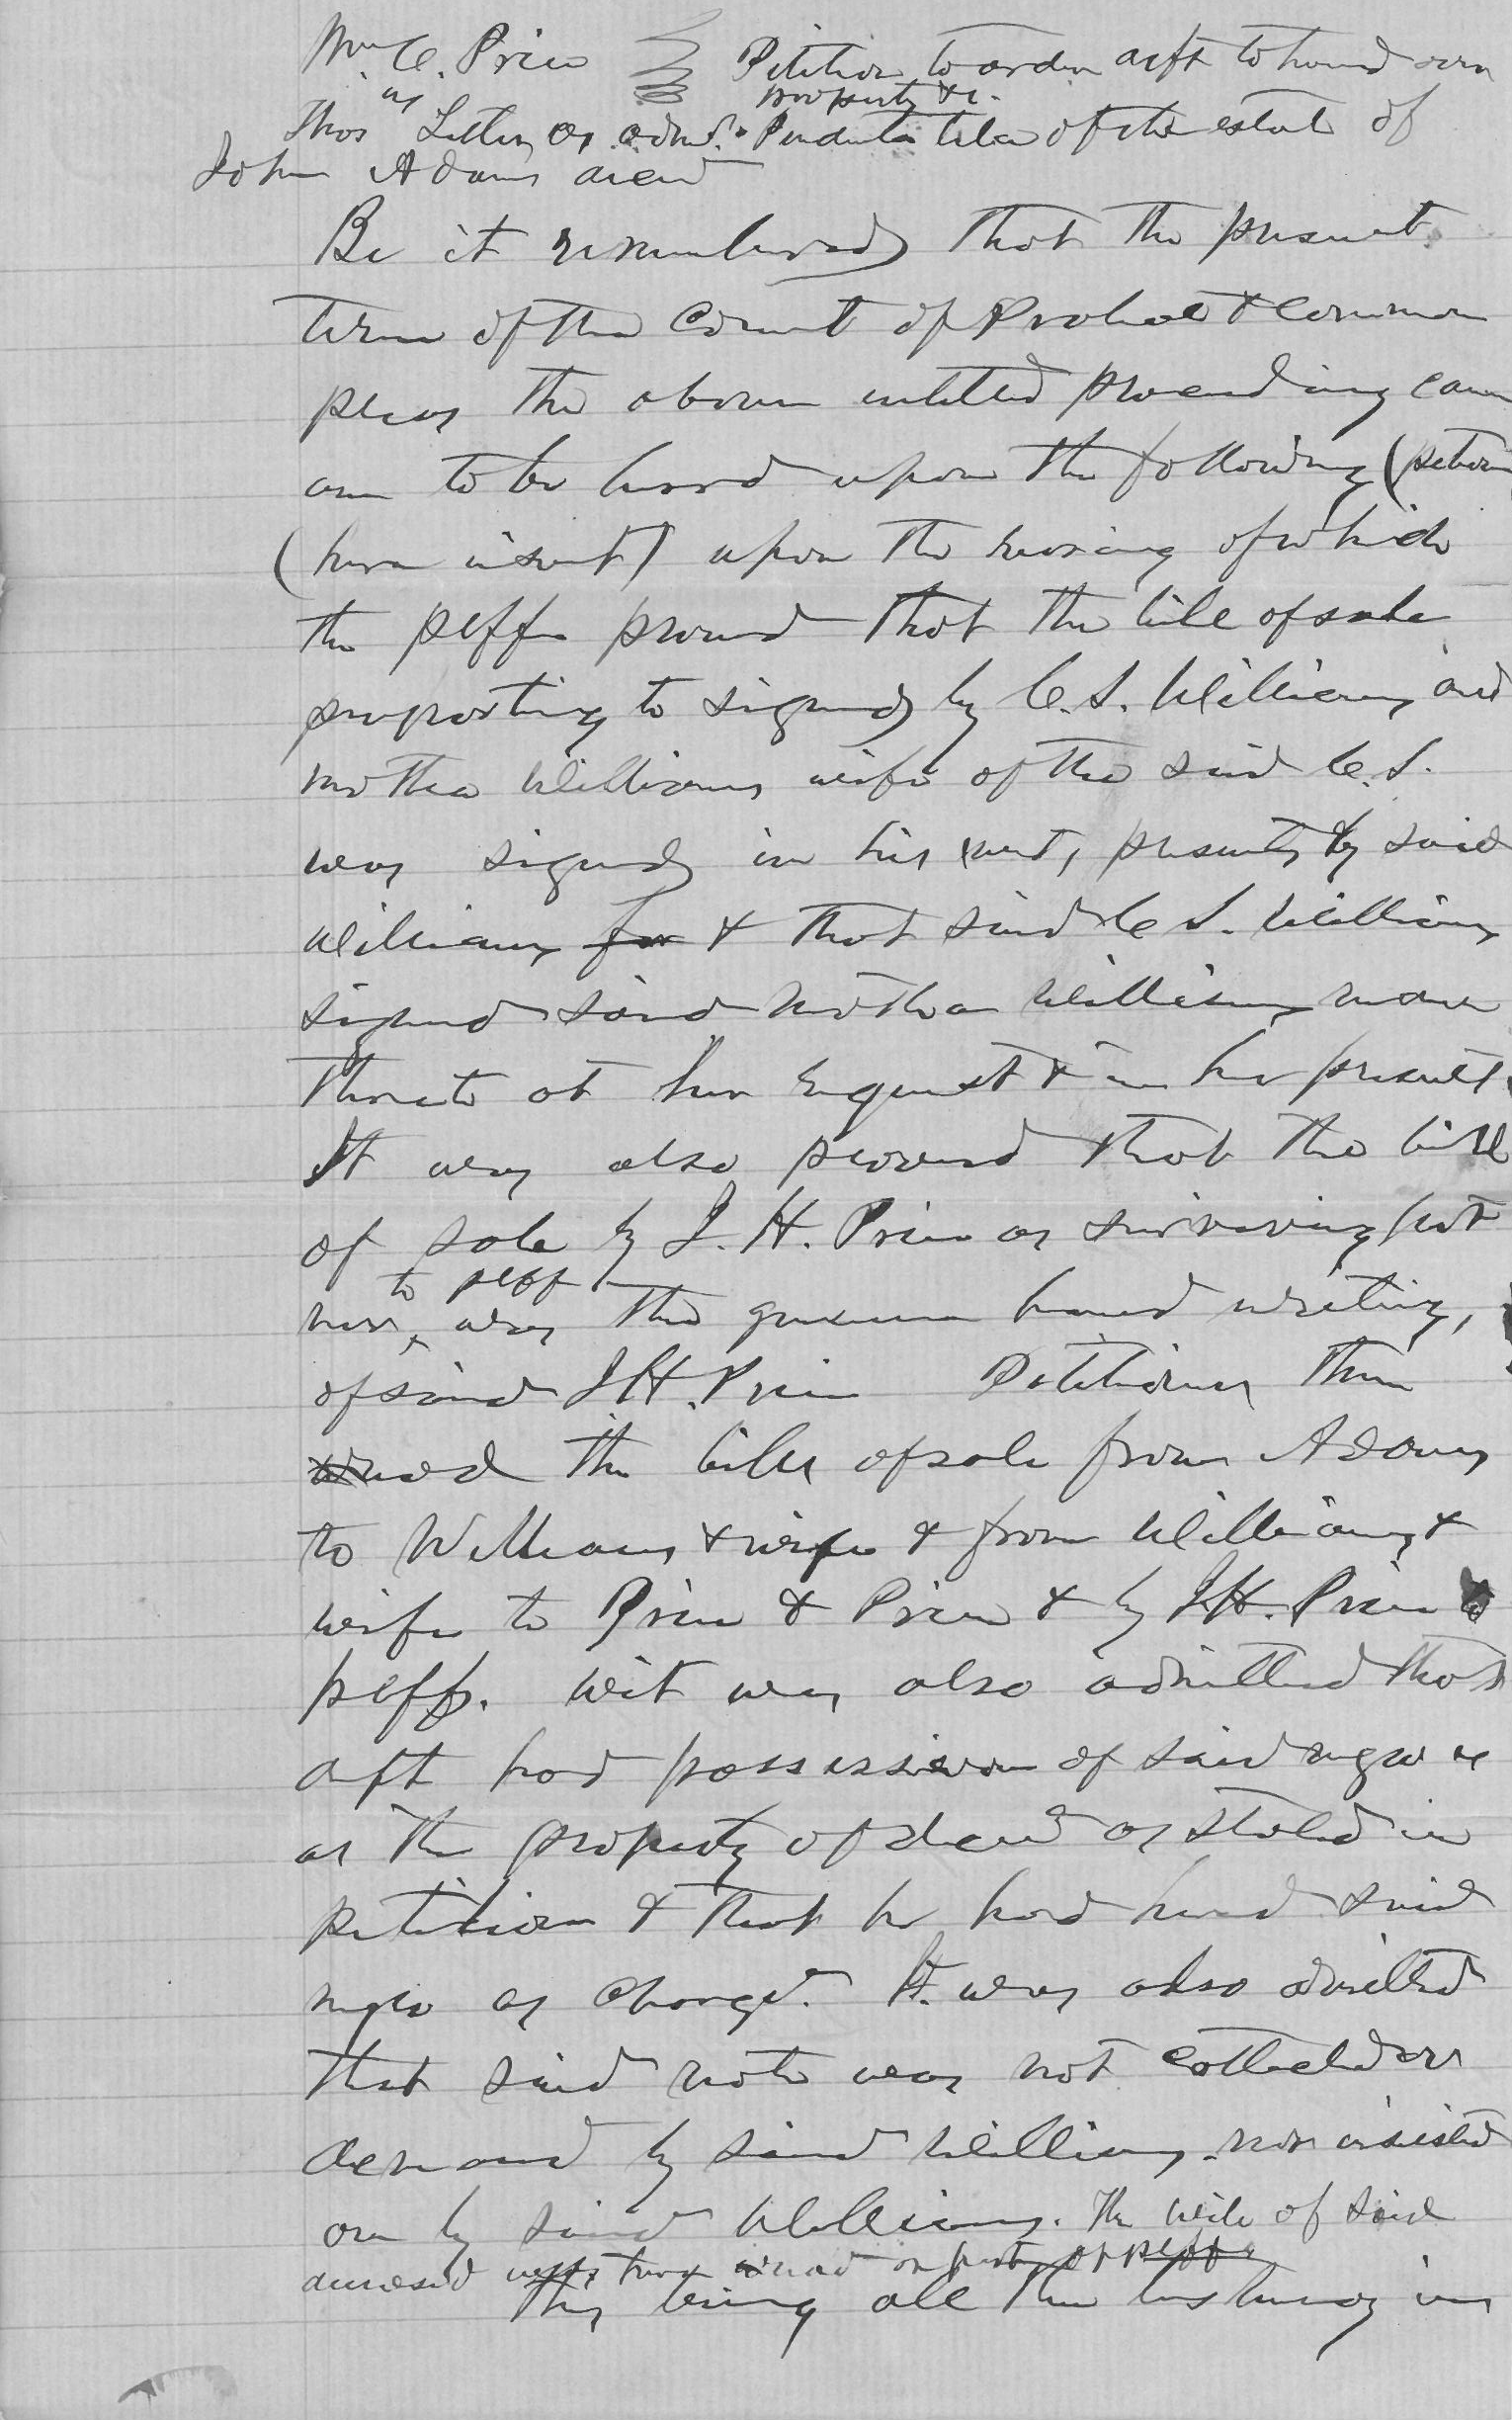 Wm. C. Price Petition to order deft to hand over
property &c.
vs
Thos Litten as admr. Pendente lite of the estate of
John Adams decd
Be it remembered that the present
term of the Court of Probate & common
pleas the above entitled proceeding came
on to be heard upon the following (petition
(here insert) upon the hearing of which
the plff proved that the bill of sale
purporting to signed by C. S. Williams and
Martha Williams wife of the said C. S.
was signed in his presents by said
Williams for & that said C S. Williams
signed said Martha Williams name
thereto at her request & in her presents
It was also proved that the bill
of sale by J. H. Price as surviving part
to plff
ner, was the genuine hand writing,
of said J. H. Price Petitioner then
read the bills of sale from Adams
to Williams & wife & from Williams &
wife to Price & Price & by J. H. Price to
plff. it was also admitted that
deft had possession of said negro
as the property of decd as stated in
petition & that he had hired said
negro as charged. It was also admitted
that said note was not collected or
demand by said Williams nor insisted
on by said Williams. The will of said
deceased was then read on part of plff
This being all the testimony in